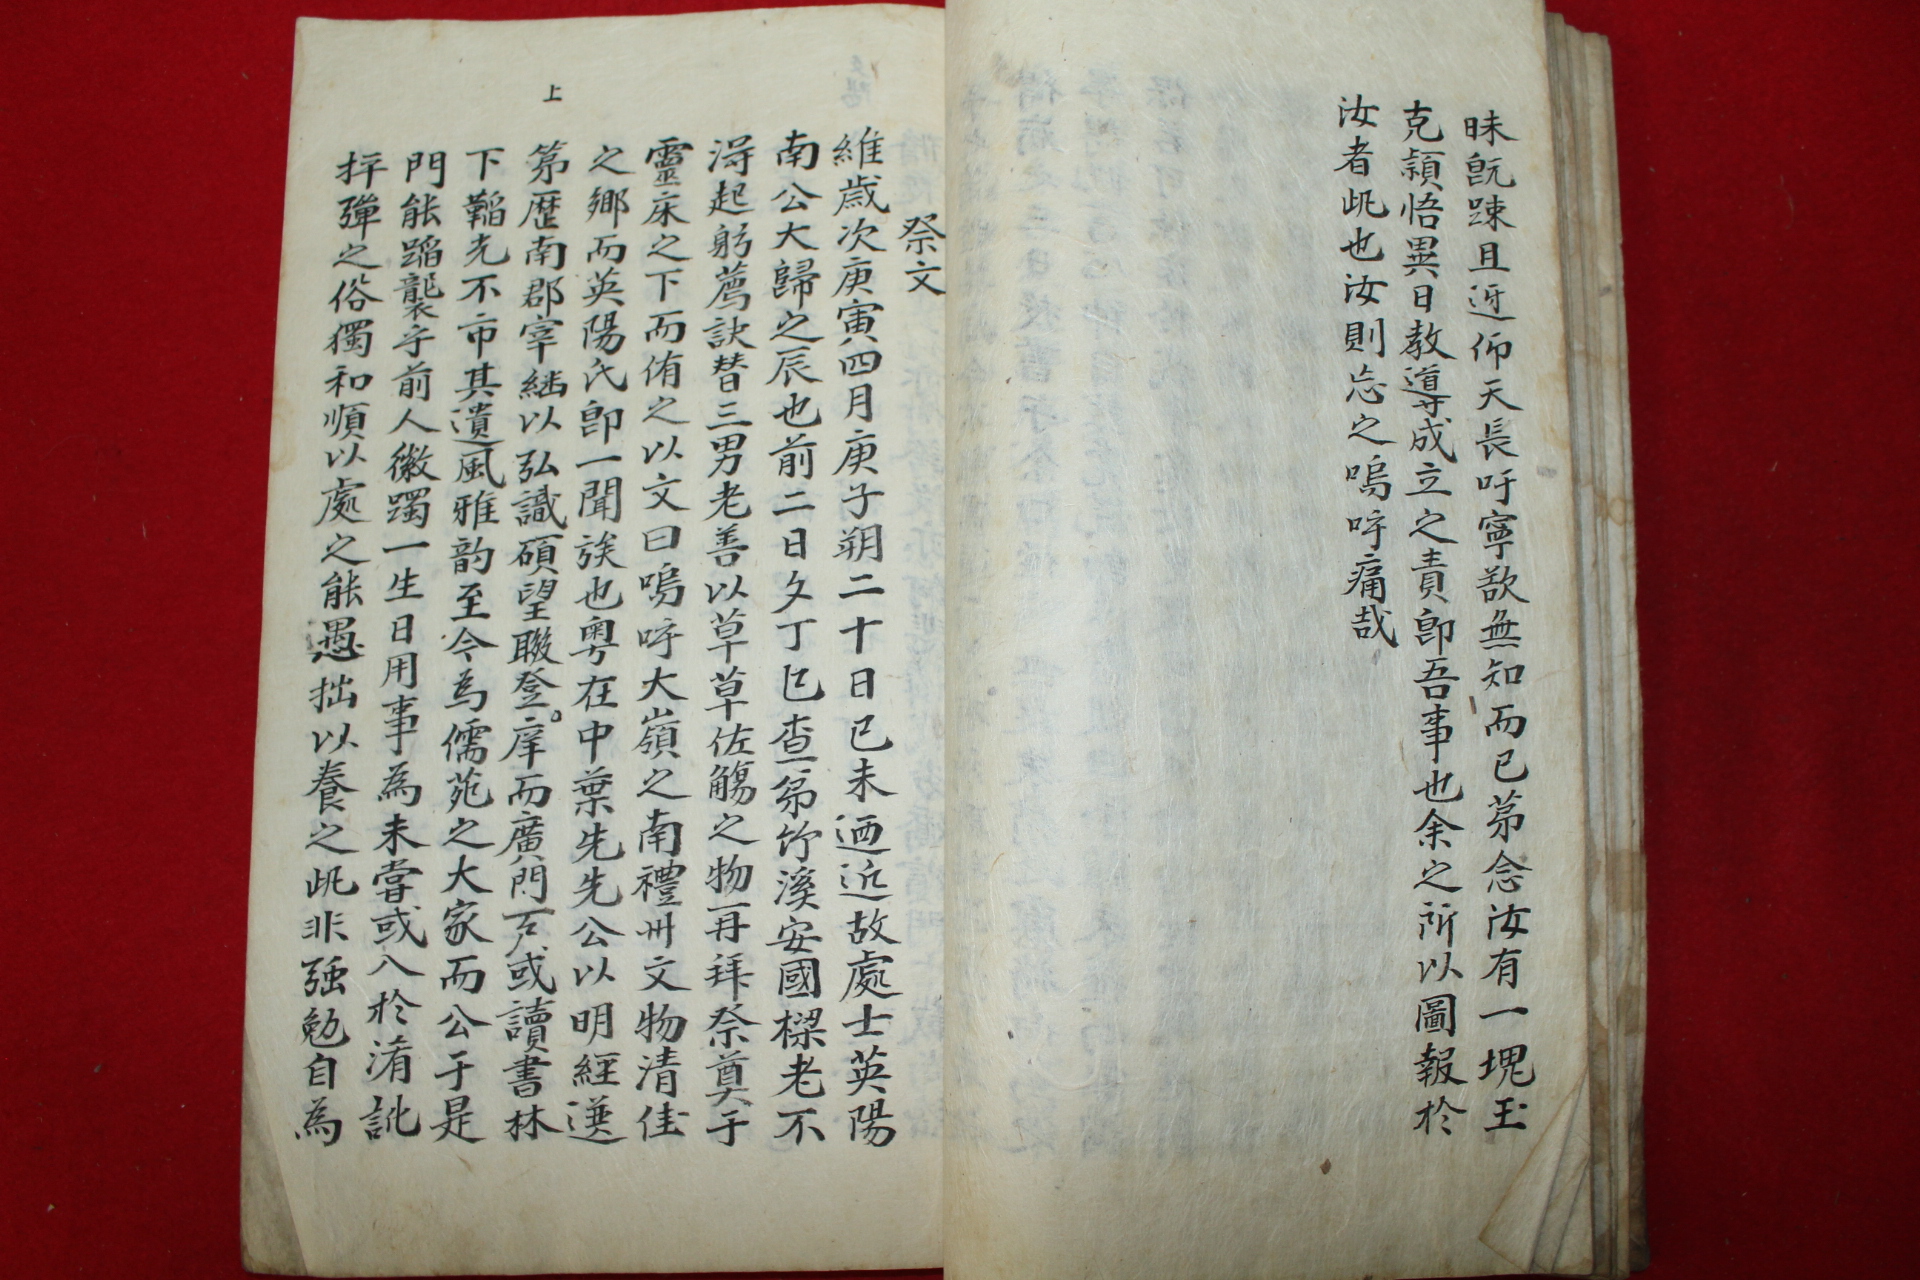 昧旣踈且近仰天長吁寧欲無知而已苐念汝有一塊玉
克穎悟異日敎導成立之責卽吾事也余之所以圖報於
汝者此也汝則忘之嗚呼痛哉
祭文
維歲次庚寅四月庚子朔二十日已未迺近故處士英陽
南公大歸之辰也前二日夕丁巳查弟竹溪安國樑老不
淂起躬薦訣替三男老善以草草佐觴之物再拜祭奠于
靈床之下而侑之以文曰嗚呼大嶺之南禮州文物淸佳
之鄕而英陽氏卽一聞族也粤在中葉先先公以明經選
第歷南郡宰繼以弘識碩望聯登庠而廣門戶或讀書林
上
下韜光不市其遺風雅韵至今為儒苑之大家而公于是
門能蹈襲乎前人徽躅一生日用事為未嘗或入於淆訛
抨彈之俗獨和順以處之能愚拙以養之此非强勉自為